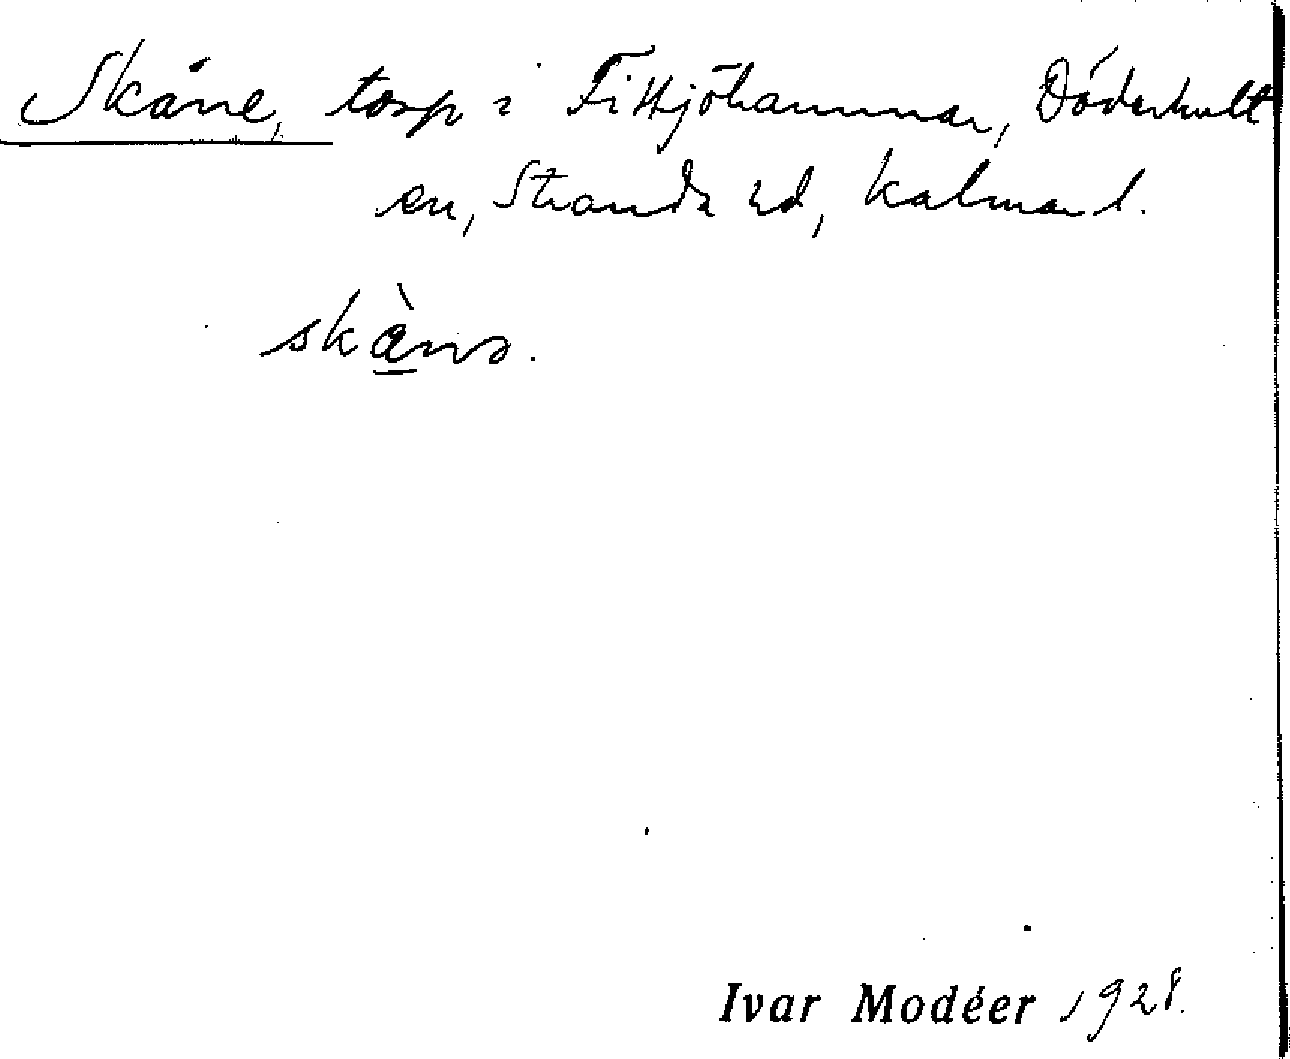 Skåne, torp i Fittjöhammar, Döderhult
sn, Stranda hd, Kalmar l.
skànə.
Ivar Modéer 1928.